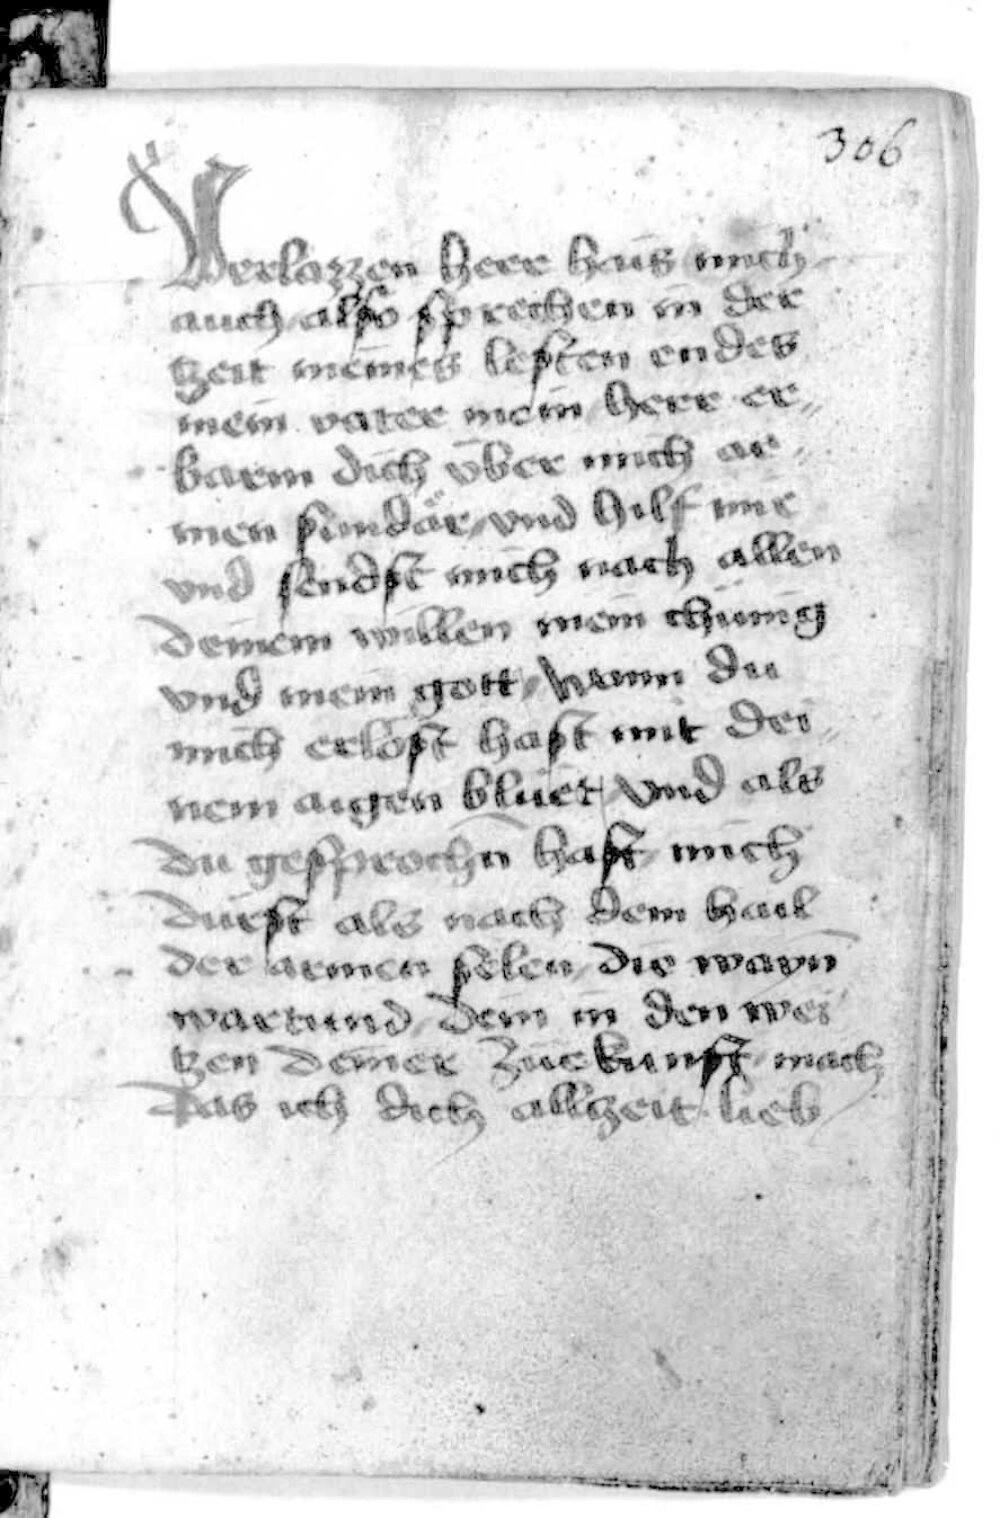 306
Verlazzen herr hais mich
auch also sprechen in der
zeit meines lesten endes
mein vater mein herr er„
barm dich vber mich ar„
men sündär vnd hilf mir
vnd sendst mich nach allen
deinem willen mein chünig
vnd mein gott wann du
mich erlöst hast mit dei„
nem aigen bluet vnd als
du gesprochn hast mich
dürst als nach dem hail
der armen selen die
wartund dein in den wei
tzen deiner zuekunft mach
das ich dich allzeit lieb